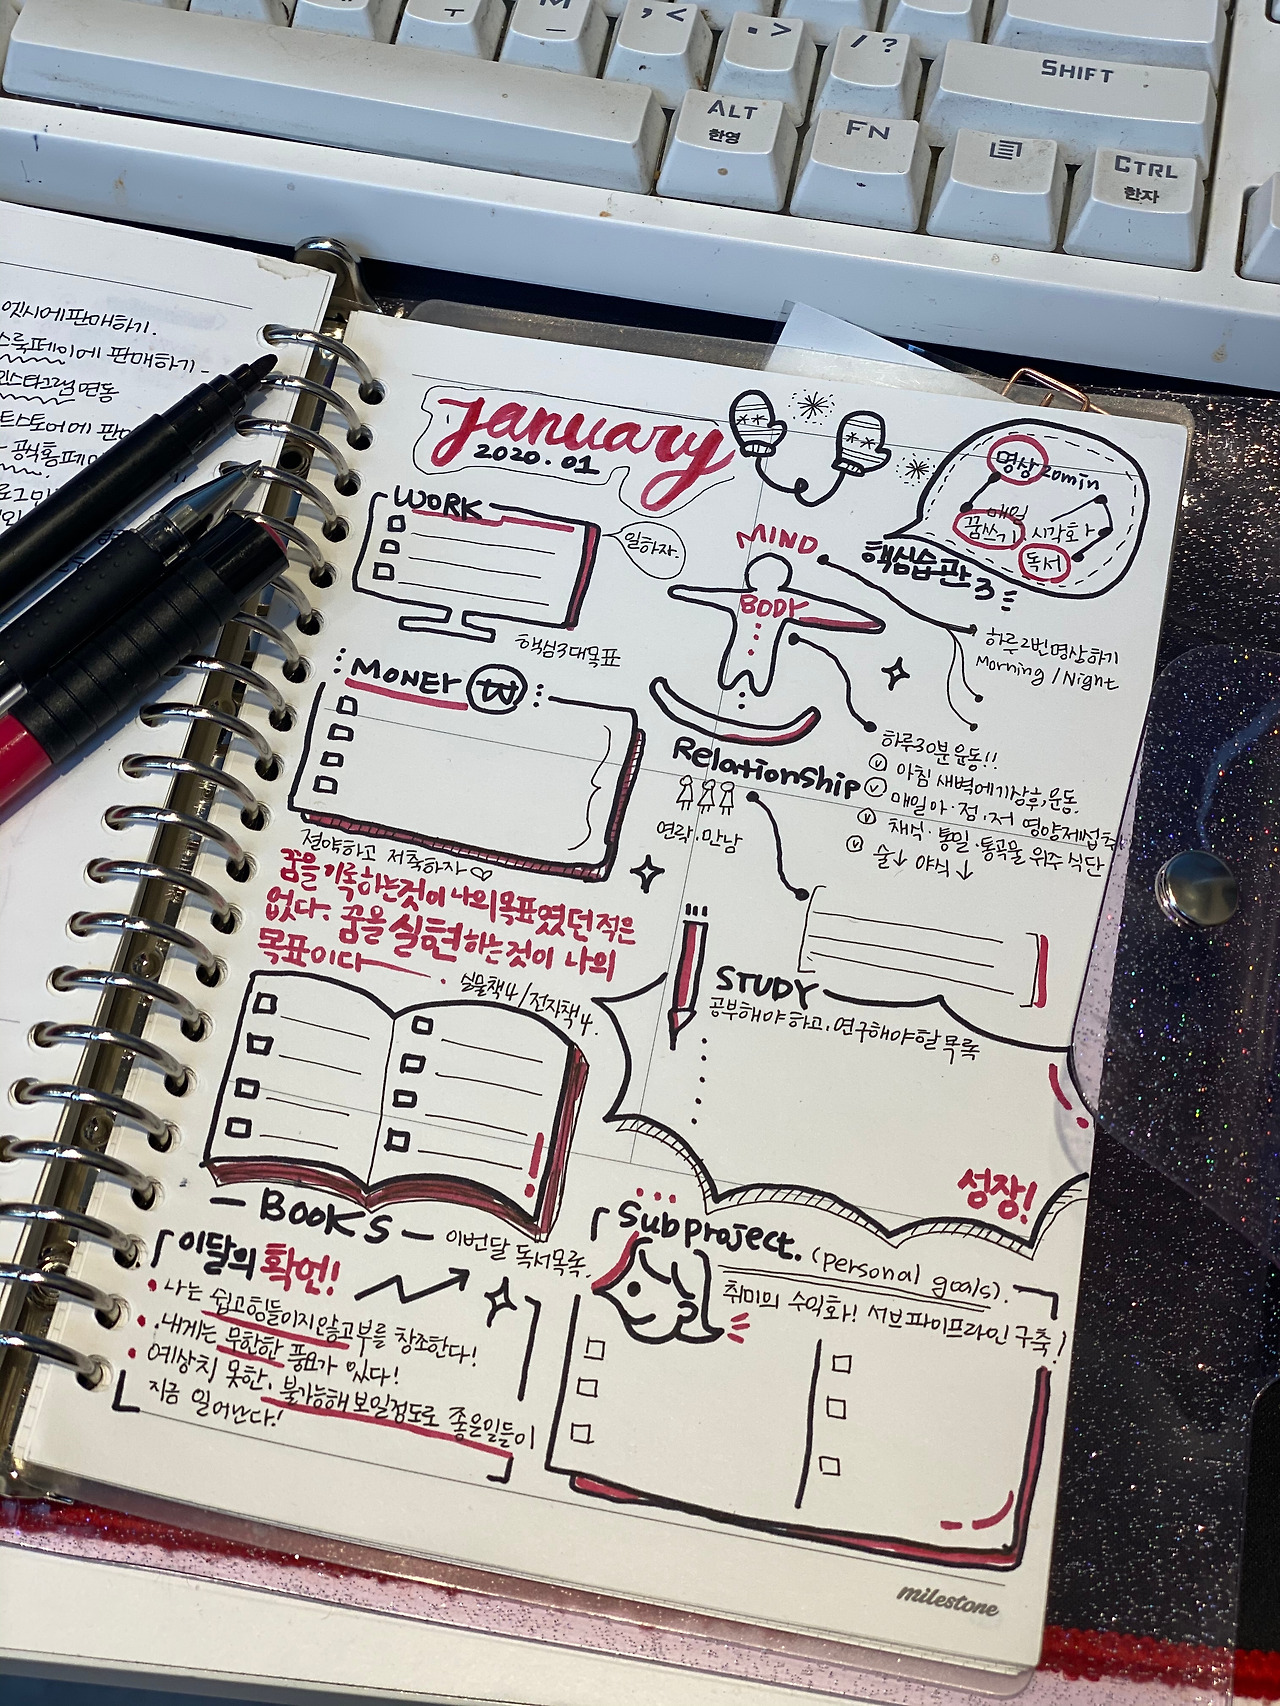 ㅜ
M
; <
. >
/ ?
SHIFT
ALT
한영
FN
CTRL
한자
엣시에 판매하기.
에 판매하기
연동
january
2020.01
WORK
일하자.
핵심3대목표
MONEY ₩
절약하고 저축하자♡
꿈을 기록하는것이 나의목표였던적은
없다. 꿈을 실현하는것이 나의
목표이다
실물책4/전자책4.
BOOKS
이번달 독서목록.
이달의 확언!
• 나는 쉽고힘들이지않고 부를 창조한다!
• 내게는 무한한 풍요가 있다!
• 예상치 못한, 불가능해보일정도로 좋은일들이
지금 일어난다!
명상 20min
매일
꿈쓰기 시각화
독서
핵심습관 3
MIND
BODY
하루2번명상하기
Morning / Night
하루30분 운동!!
ⓥ 아침 새벽에기상후, 운동.
ⓥ 매일 아·점·저 영양제섭취
ⓥ 채식·통밀·통곡물 위주 식단
ⓥ 술↓ 야식↓
Relationship
연락·만남
STUDY
공부해야하고, 연구해야할 목록
성장!
Sub project. (personal goals).
취미의 수익화! 서브파이프라인 구축!
milestone